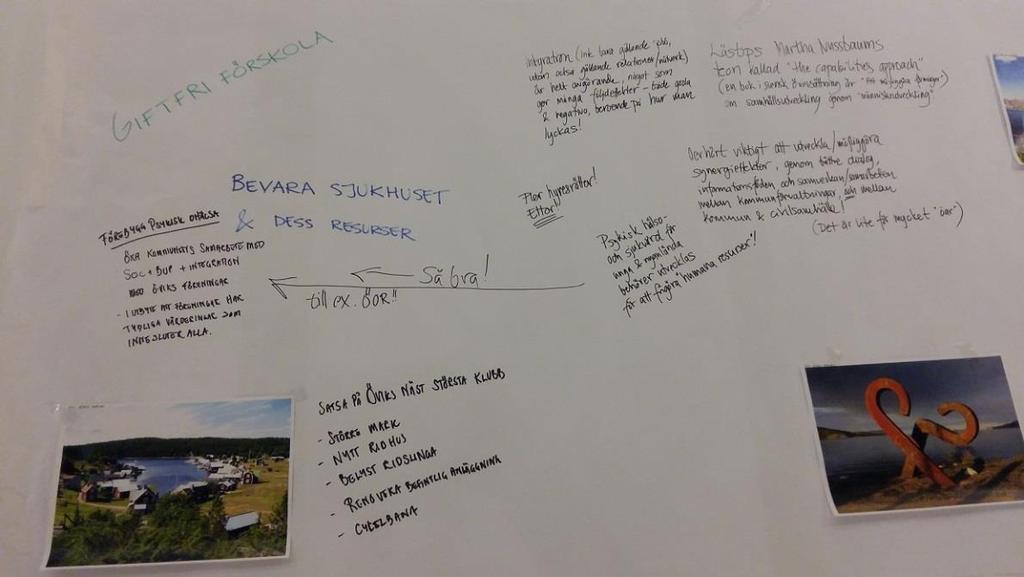 GIFTFRI FÖRSKOLA
BEVARA SJUKHUSET
& DESS RESURSER
FÖREBYGG PSYKISK OHÄLSA
ÖKA KOMMUNENS SAMARBETE MED
SOC + BUP + INTEGRATION
MED ÖVIKS FÖRENINGAR
- I UTBYTE ATT FÖRENINGAR HAR
TYDLIGA VÄRDERINGAR SOM
INNESLUTER ALLA.
Så bra!
till ex. ÖOR!!
Integration (ink bara gällande jobb,
utan också gällande relationer/nätverk)
är helt avgörande, något som
ger många följdeffekter - både goda
& negativa, beroende på hur man
lyckas!
Fler hyresrätter!
Ettor!
Lästips Martha Nussbaums
teori kallad "the capabilites approach"
(en bok i svensk översättning är "Att möjliggöra förmågor")
om samhällsutveckling genom "människoutveckling"
Oerhört viktigt att utveckla/möjliggöra
synergieffekter, genom bättre dialog,
informationsflöden och samverkan/samarbeten
mellan kommunförvaltningar, och mellan
kommun & civilsamhälle!
(Det är lite för mycket "öar")
Psykisk hälso-
och sjukvård för
unga & nyanlända
behöver utvecklas
för att frigöra "humana resurser"!
SATSA PÅ ÖVIKS NÄST STÖRSTA KLUBB
- STÖRRE MARK
- NYTT RIDHUS
- BELYST RIDSLINGA
- RENOVERA BEFINTLIG ANLÄGGNING
- CYKELBANA